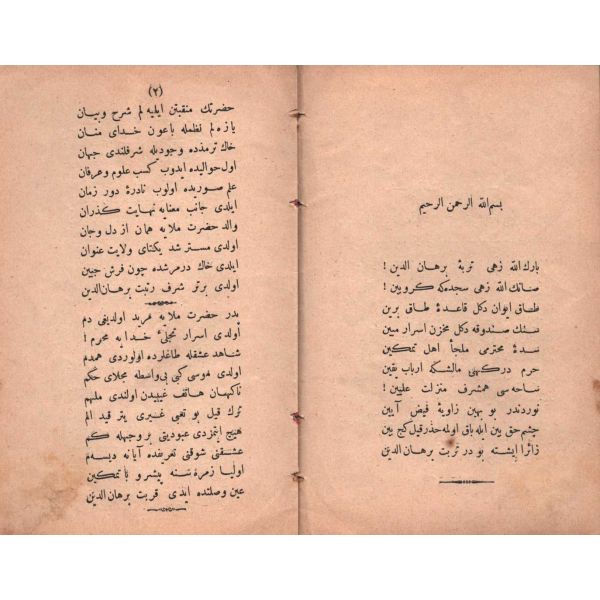 بسم الله الرحمن الرحیم
بارك الله زهی تربهٔ برهان الدین !
صانك الله زهی سجده‌كه كروبین !
طاق ایوان دكل قاعدهٔ طاق برین
سنك صندوقه دكل مخزن اسرار مبین
سدهٔ محترمی ملجأ اهل تمكین
حرم دركهی مالشكه ارباب یقین
ساحه سی همشرف منزلت علیین !
نوردندر بو بهین زاویهٔ فیض آیین
چشم حق بین ایله باق اولمه حذر قیل كج بین
زائرا ایشته بو در تربت برهان الدین
(۲)
حضرتك منقبتن ایلیه لم شرح وبیان
یازه لم نظمله باعون خدای منان
خاك ترمذده وجودیله شرفلندی جهان
اول حوالیده ایدوب كسب علوم وعرفان
علم صوریده اولوب نادرهٔ دور زمان
ایلدی جانب معنایه نهایت كذران
والد حضرت ملایه همان از دل وجان
اولدی مسترشد یكتای ولایت عنوان
ایلدی خاك درمرشده چون فرش جبین
اولدی برتر شرف رتبت برهان الدین
پدر حضرت ملایه مرید اولدیغی دم
اولدی اسرار تجلیٔ خدایه محرم !
شاهد عشقله طاغلرده اولوردی همدم
اولدی موسی كبی بی واسطه مجلای حكم
ناكهان هاتف غیبیدن اولندی ملهم
ترك قیل بو تعبی غیری یتر قید الم
هیچ ایتمزدی عبودیتی بر وجهله كم
عشقنی شوقنی تعریفده آیا نه دیسه‌م
اولیا زمره سنه پیشرو با تمكین
عین وصلتده ایدی قربت برهان الدین